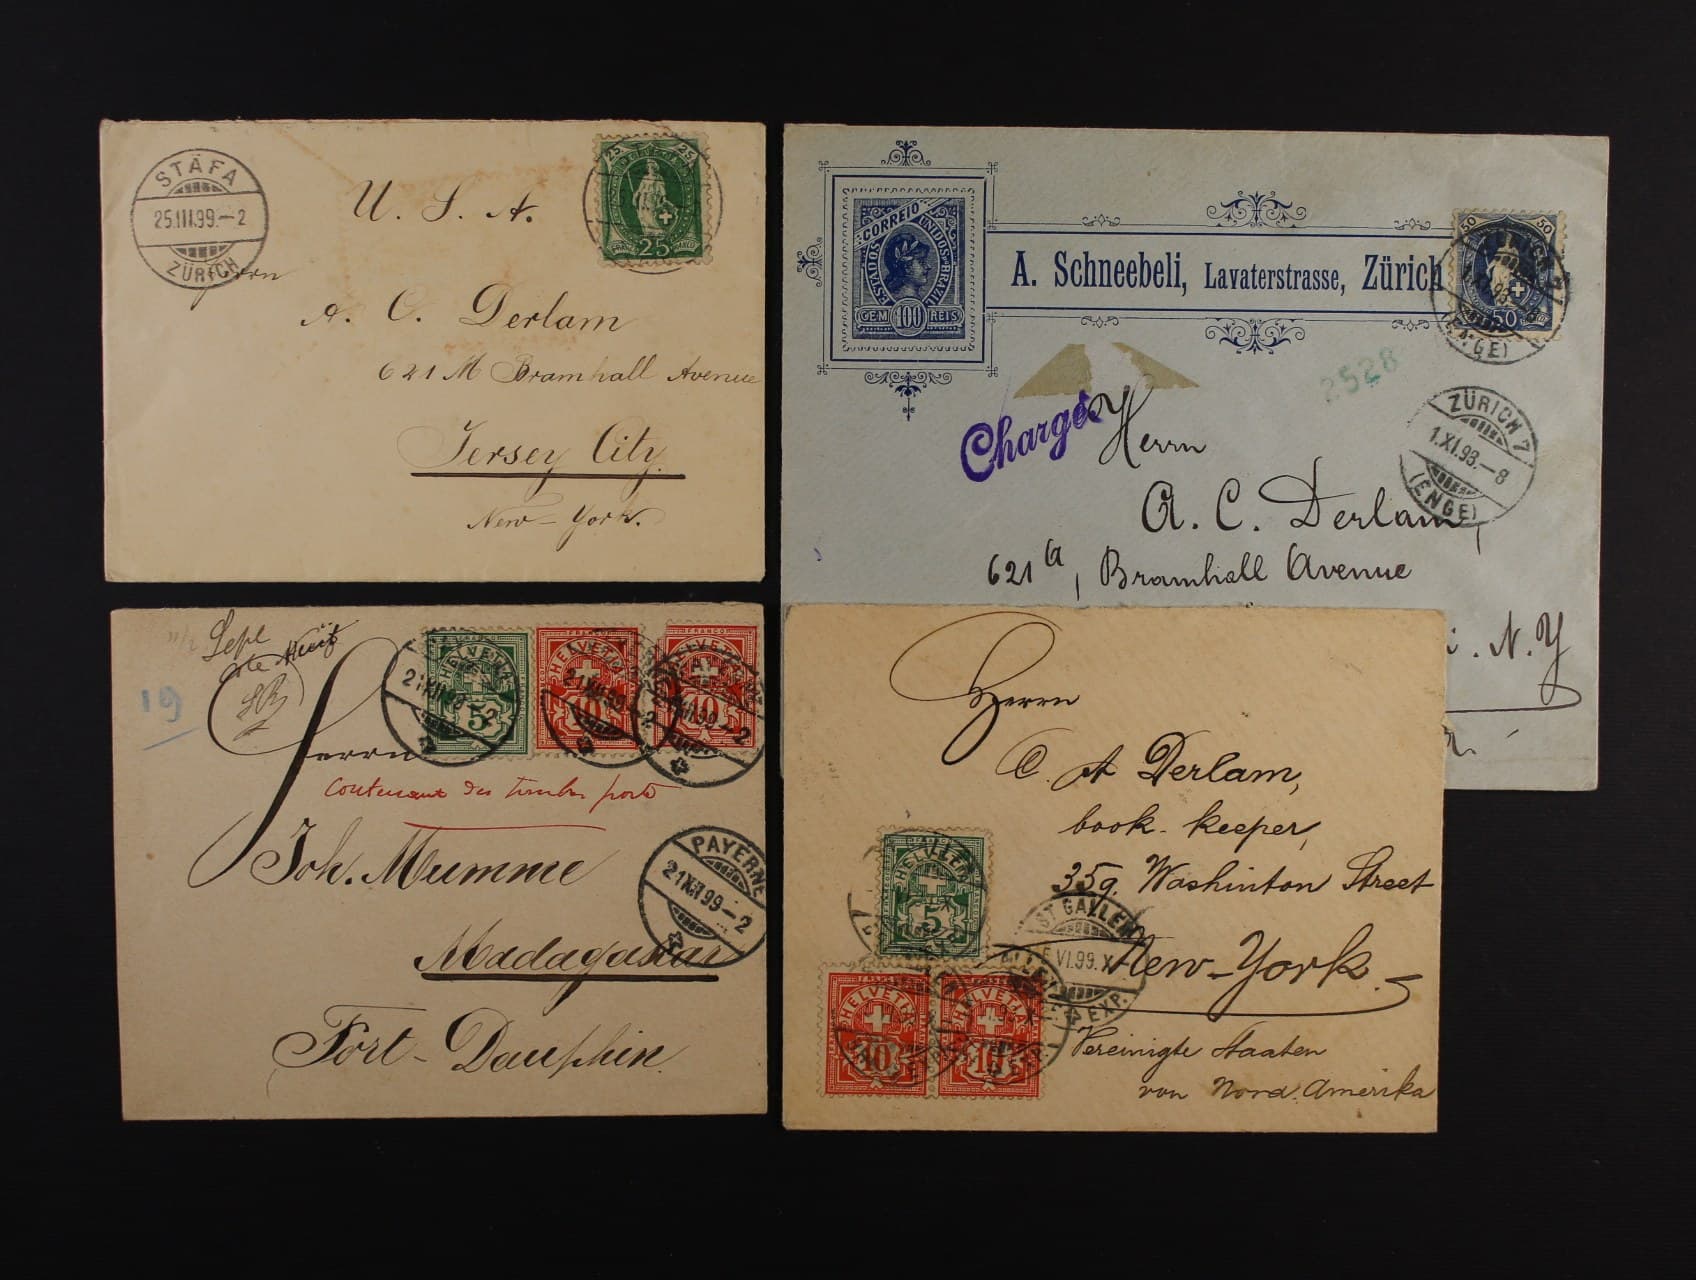 STÄFA
25.III.99.-2
ZÜRICH
U. S. A.
25 25
25
Herrn
A. C. Derlam
621 A Bramhall Avenue
Jersey City.
New-York.
CORREIO
ESTADOS UNIDOS DO BRAZIL
CEM 100 REIS
A. Schneebeli, Lavaterstrasse, Zürich
50 50
50
(ENGE)
2528
Chargé
ZÜRICH 7
1.XI.98.-8
(ENGE)
Herrn
A. C. Derlam,
621 a, Bramhall Avenue
N. Y
19
HELVETIA
5
FRANCO
HELVETIA
10
FRANCO
HELVETIA
10
21.XII.99.-2
Herrn
contenant des timbres poste
Joh. Mumme
PAYERNE
21.XII.99-2
Madagascar
Fort-Dauphin.
Herrn
C. A Derlam,
book-keeper,
359. Washinton Street
New-York.
Vereinigte Staaten
von Nord. Amerika
HELVETIA
5
HELVETIA
10
HELVETIA
10
ST. GALLEN
VI.99.X
EXP.